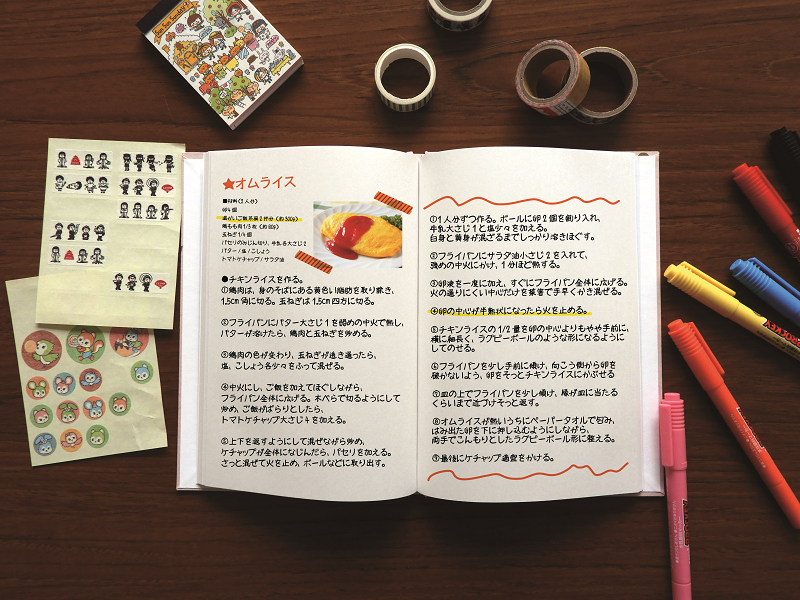 ★オムライス
■材料(2人分)
卵4個
温かいご飯茶碗2杯分(約300g)
鶏もも肉1/3枚(約80g)
玉ねぎ1/4個
パセリのみじん切り、牛乳各大さじ2
バター/塩/こしょう
トマトケチャップ/サラダ油
●チキンライスを作る。
①鶏肉は、身のそばにある黄色い脂肪を取り除き、
1.5cm角に切る。玉ねぎは1.5cm四方に切る。
②フライパンにバター大さじ1を弱めの中火で熱し、
バターが溶けたら、鶏肉と玉ねぎを炒める。
③鶏肉の色が変わり、玉ねぎが透き通ったら、
塩、こしょう各少々をふって混ぜる。
④中火にし、ご飯を加えてほぐしながら、
フライパン全体に広げる。木べらで切るようにして
炒め、ご飯がぱらりとしたら、
トマトケチャップ大さじ4を加える。
⑤上下を返すようにして混ぜながら炒め、
ケチャップが全体になじんだら、パセリを加える。
さっと混ぜて火を止め、ボールなどに取り出す。
①1人分ずつ作る。ボールに卵2個を割り入れ、
牛乳大さじ1と塩少々を加える。
白身と黄身が混ざるまでしっかり溶きほぐす。
②フライパンにサラダ油小さじ2を入れて、
強めの中火にかけ、1分ほど熱する。
③卵液を一度に加え、すぐにフライパン全体に広げる。
火の通りにくい中心だけを菜箸で手早くかき混ぜる。
④卵の中心が半熟状になったら火を止める。
⑤チキンライスの1/2量を卵の中心よりもやや手前に、
横に細長く、ラグビーボールのような形になるように
してのせる。
⑥フライパンを少し手前に傾け、向こう側から卵を
破かないよう、卵をそっとチキンライスにかぶせる
⑦皿の上でフライパンを少し傾け、縁が皿に当たる
くらいまで近づけそっと返す。
⑧オムライスが熱いうちにペーパータオルで包み、
はみ出た卵を下に押し込むようにしながら、
両手でこんもりとしたラグビーボール形に整える。
⑨最後にケチャップ適量をかける。